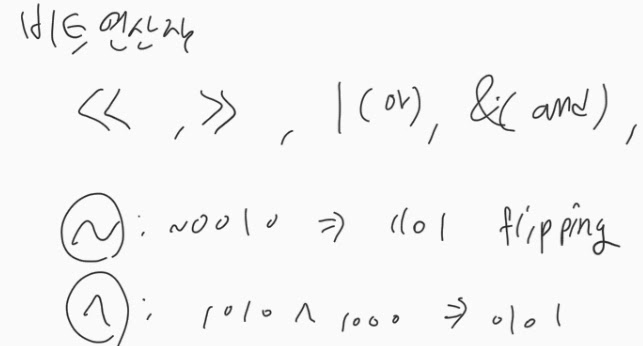 비트 연산자
<< , >> , |(or), &(and),
~ : ~0010 ⇒ 1101 flipping
^ : 1010 ^ 1000 ⇒ 0101